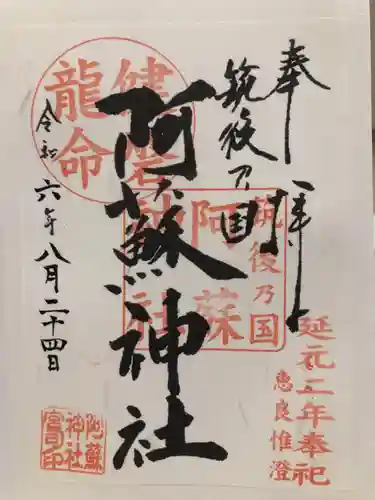 奉拝
延元二年奉祀
恵良惟澄
筑後乃国
阿蘇神社
令和六年八月二十四日
健磐
龍命
筑後乃国
阿蘇
神社
阿蘇
神社